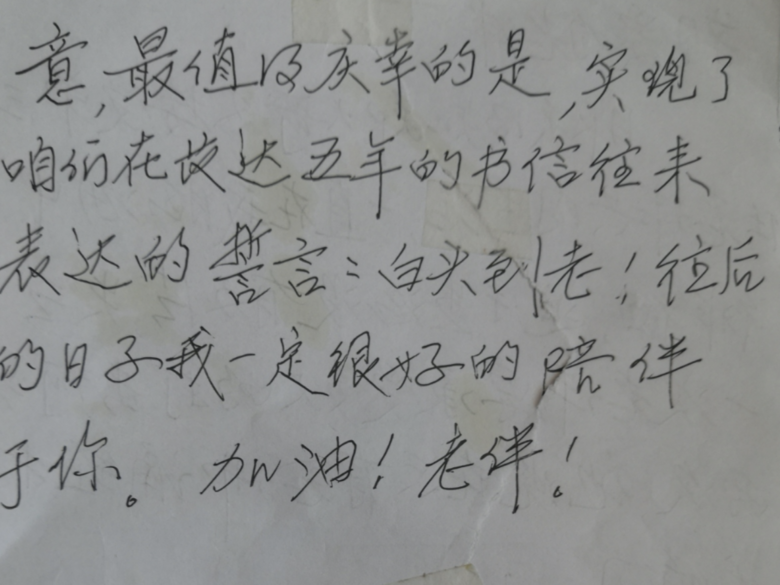 意,最值得庆幸的是,实现了
咱们在故达五年的书信往来
表达的誓言:白头到老!往后
的日子我一定很好的陪伴
于你。加油!老伴!